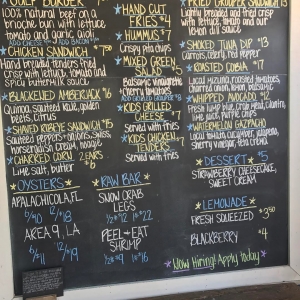 GULF BURGER
100% natural beef on a
brioche bun with lettuce
tomato and garlic aioli
ADD CHEESE ADD BACON
CHICKEN SANDWICH
Hand breaded tenders fried
crisp with lettuce, tomato and
spicy buttermilk sauce
BLACKENED AMBERJACK $16
Quinoa, sauteed kale, golden
beets, citrus
SHAVED RIBEYE SANDWICH $15
Sauteed peppers + onions, Swiss,
horseradish cream, hoagie
CHARRED CORN 2 EARS $6
Lime salt, butter
OYSTERS
APALACHICOLA, FL
6/$10 12/$18
AREA 9, LA
6/$11 12/$19
HAND CUT
FRIES $4
HUMMUS $7
Crispy pita chips
MIXED GREEN
Balsamic vinaigrette
KIDS GRILLED
CHEESE $7
Served with fries
KIDS CHICKEN
TENDERS
Served with fries
RAW BAR
SNOW CRAB
LEGS
1/2# $12 1# $22
PEEL + EAT
SHRIMP
1/2# $9 1# $16
FRIED GROUPER SANDWICH
Lightly breaded and fried crisp
with lettuce, tomato and
SMOKED TUNA DIP $13
Carrots, celery,
ROASTED COBIA $17
Local zucchini, roasted tomatoes,
charred onion, lemon, balsamic
WHIPPED AVOCADO $12
WATERMELON GAZPACHO
Local tomato, cucumber, jalapeno,
sherry vinegar,
DESSERT $5
STRAWBERRY CHEESECAKE,
SWEET CREAM
LEMONADE
FRESH SQUEEZED $3.50
BLACKBERRY $4
Now Hiring! Apply today